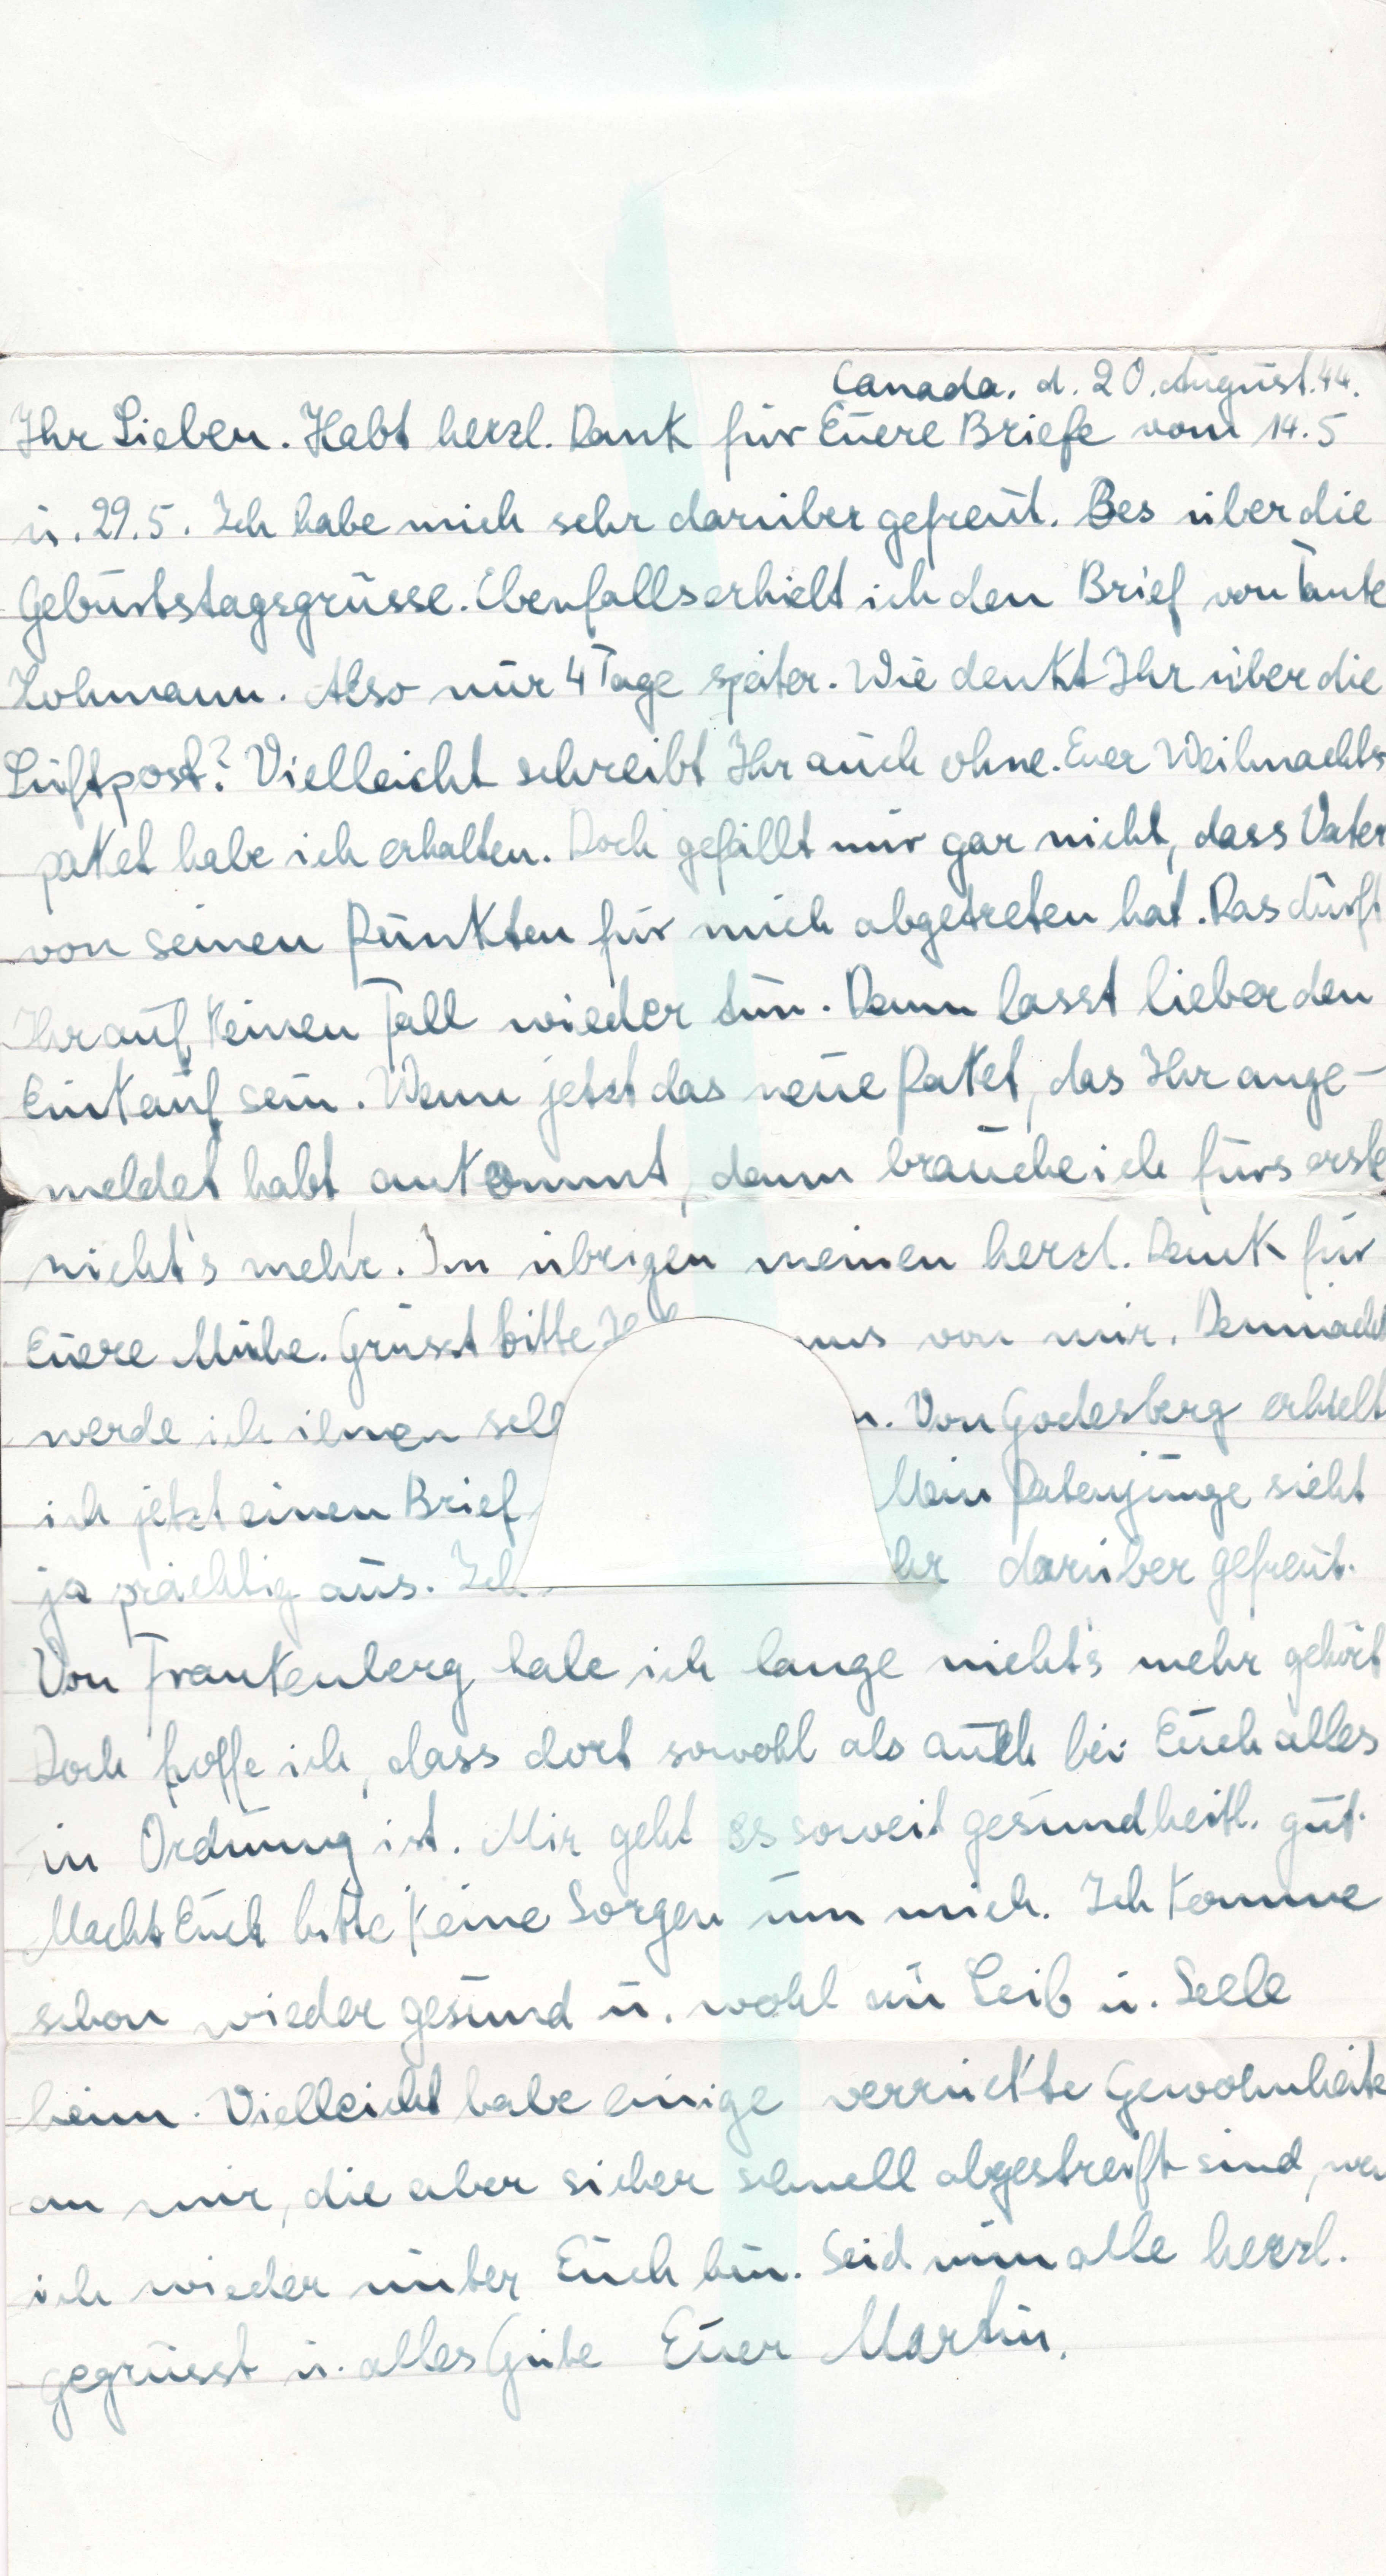 Canada. d. 20. August. 44.
Ihr Lieben. Habt herzl. Dank für Euere Briefe vom 14.5
u. 29.5. Ich habe mich sehr darüber gefreut. Bes über die
Geburtstagsgrüsse. Ebenfalls erhielt ich den Brief von Tante
Also nur 4 Tage später. Wie denkt Ihr über die
Luftpost? Vielleicht schreibt Ihr auch ohne. Euer Weihnachts
paket habe ich erhalten. Doch gefällt mir gar nicht, dass Vater
von seinen Punkten für mich abgetreten hat. Das dürft
Ihr auf keinen Fall wieder tun. Dann lasst lieber den
Einkauf sein. Wenn jetzt das neue Paket, das Ihr ange-
meldet habt ankommt, dann brauche ich fürs erste
nicht's mehr. Im übrigen meinen herzl. Dank für
Euere Mühe. Grüsst bitte von mir. Demnächst
werde ich ihnen Von Godesberg erhielt
ich jetzt einen Brief Mein Patenjunge sieht
ja prächtig aus. Ich darüber gefreut.
Von Frankenberg habe ich lange nicht's mehr gehört
Doch hoffe ich, dass dort sowohl als auch bei Euch alles
in Ordnung ist. Mir geht es soweit gesundheitl. gut.
Macht Euch bitte keine Sorgen um mich. Ich komme
schon wieder gesund u. wohl an Leib u. Seele
heim. Vielleicht habe einige verrückte Gewohnheite
an mir, die aber sicher schnell abgestreift sind, we
ich wieder unter Euch bin. Seid nun alle herzl.
gegrüsst u. alles Gute Euer Martin.